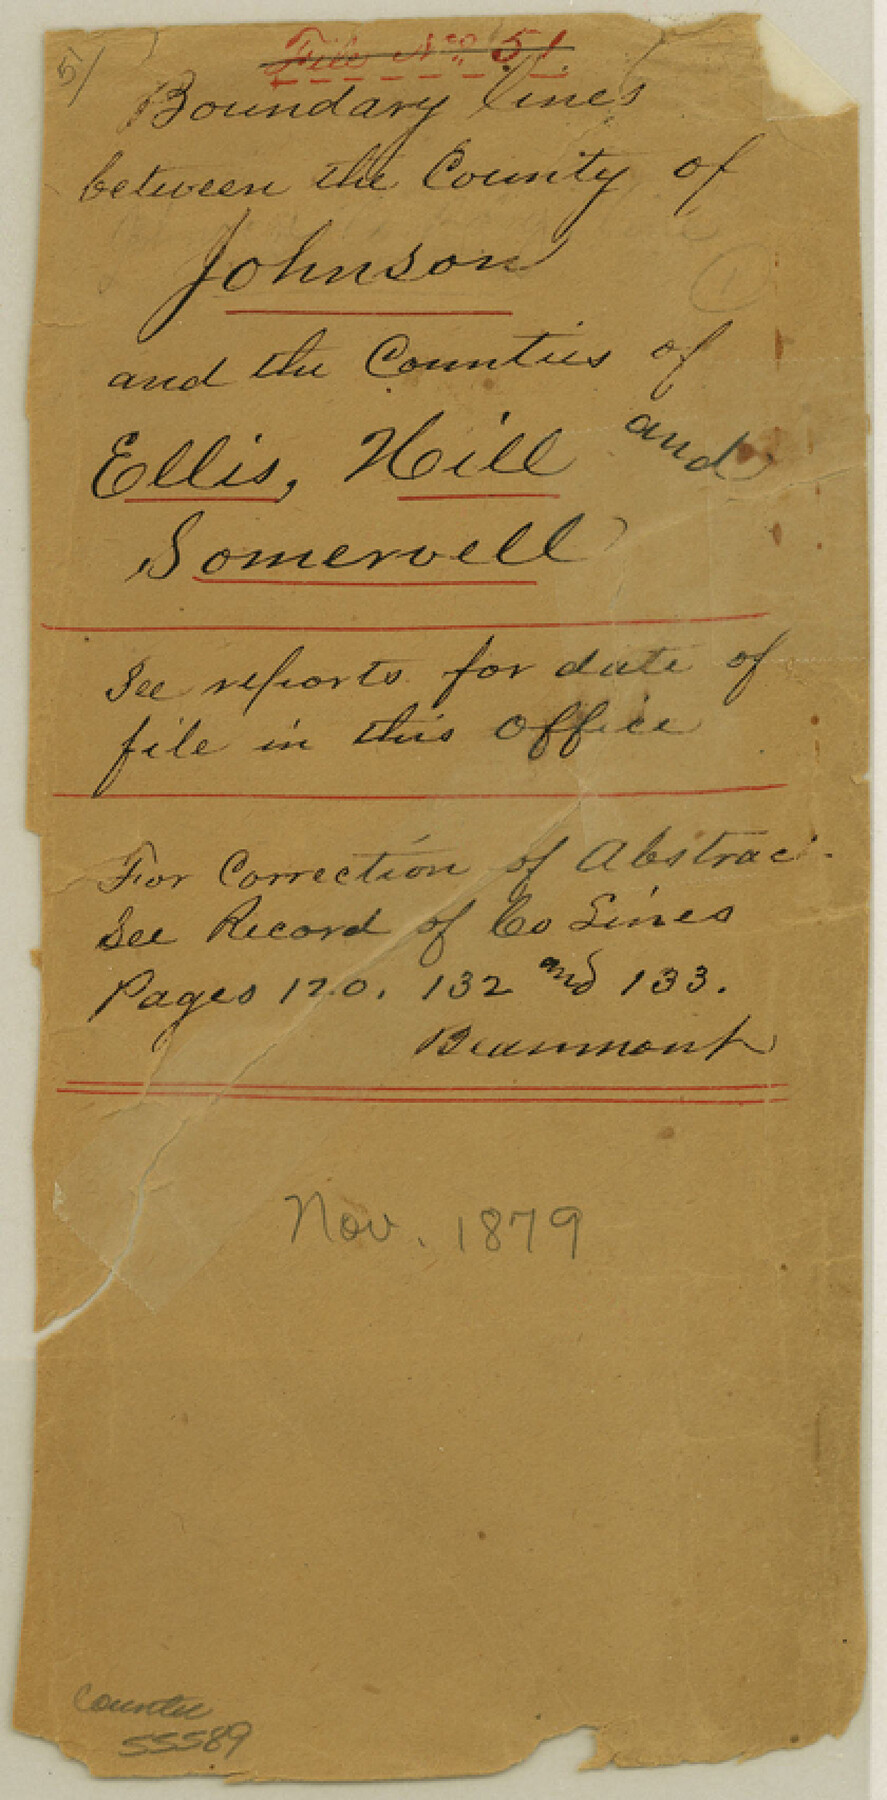 51
File No. 51
Boundary lines
between the County of
Johnson
1
and the Counties of
Ellis, Hill and
Somervell
See reports for date of
file in this office
For Correction of Abstract
See Record of Co Lines
Pages 120. 132 and 133.
Beaumont
Nov. 1879
Counter
55589